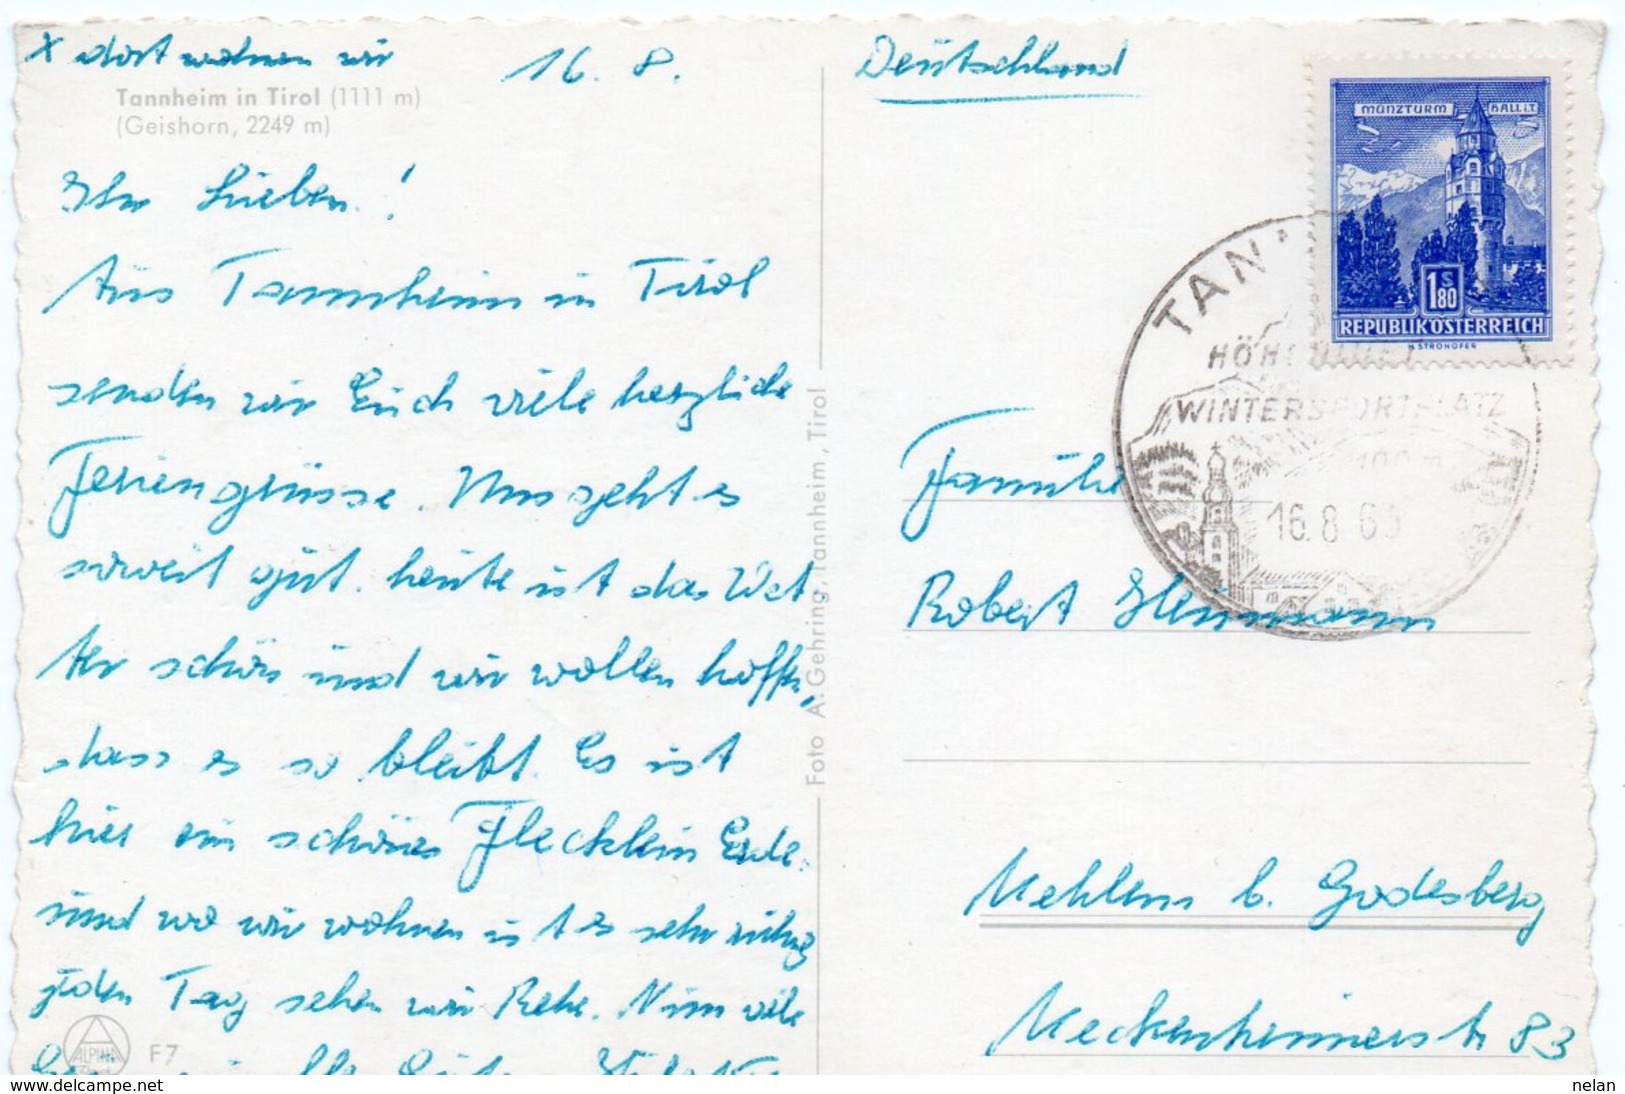 x dort wohnen wir 16. 8.
Tannheim in Tirol (1111 m)
(Geishorn, 2249 m)
Ihr Lieben!
Aus Tannheim in Tirol
senden wir Euch viele herzliche
Feriengrüsse. Uns geht es
soweit gut. heute ist das Wet
ter schön und wir wollen hoffen,
dass es so bleibt. Es ist
hier ein schönes Flecklein Erde.
und wo wir wohnen ist es sehr ruhig
jeden Tag sehen wir Rehe. Nun viele
ALPINA
F7
Foto A. Gehring, Tannheim, Tirol
Deutschland
MÜNZTURM HALL i.T.
1 S 80
REPUBLIK ÖSTERREICH
H. STROHOFER
TANN
HÖH
WINTERSPORTPLATZ
1100 m
16.8.63
Familie
Robert Heinmann
Mehlem b. Godesberg
Meckenheimerstr 83
© delcampe.net
nelan